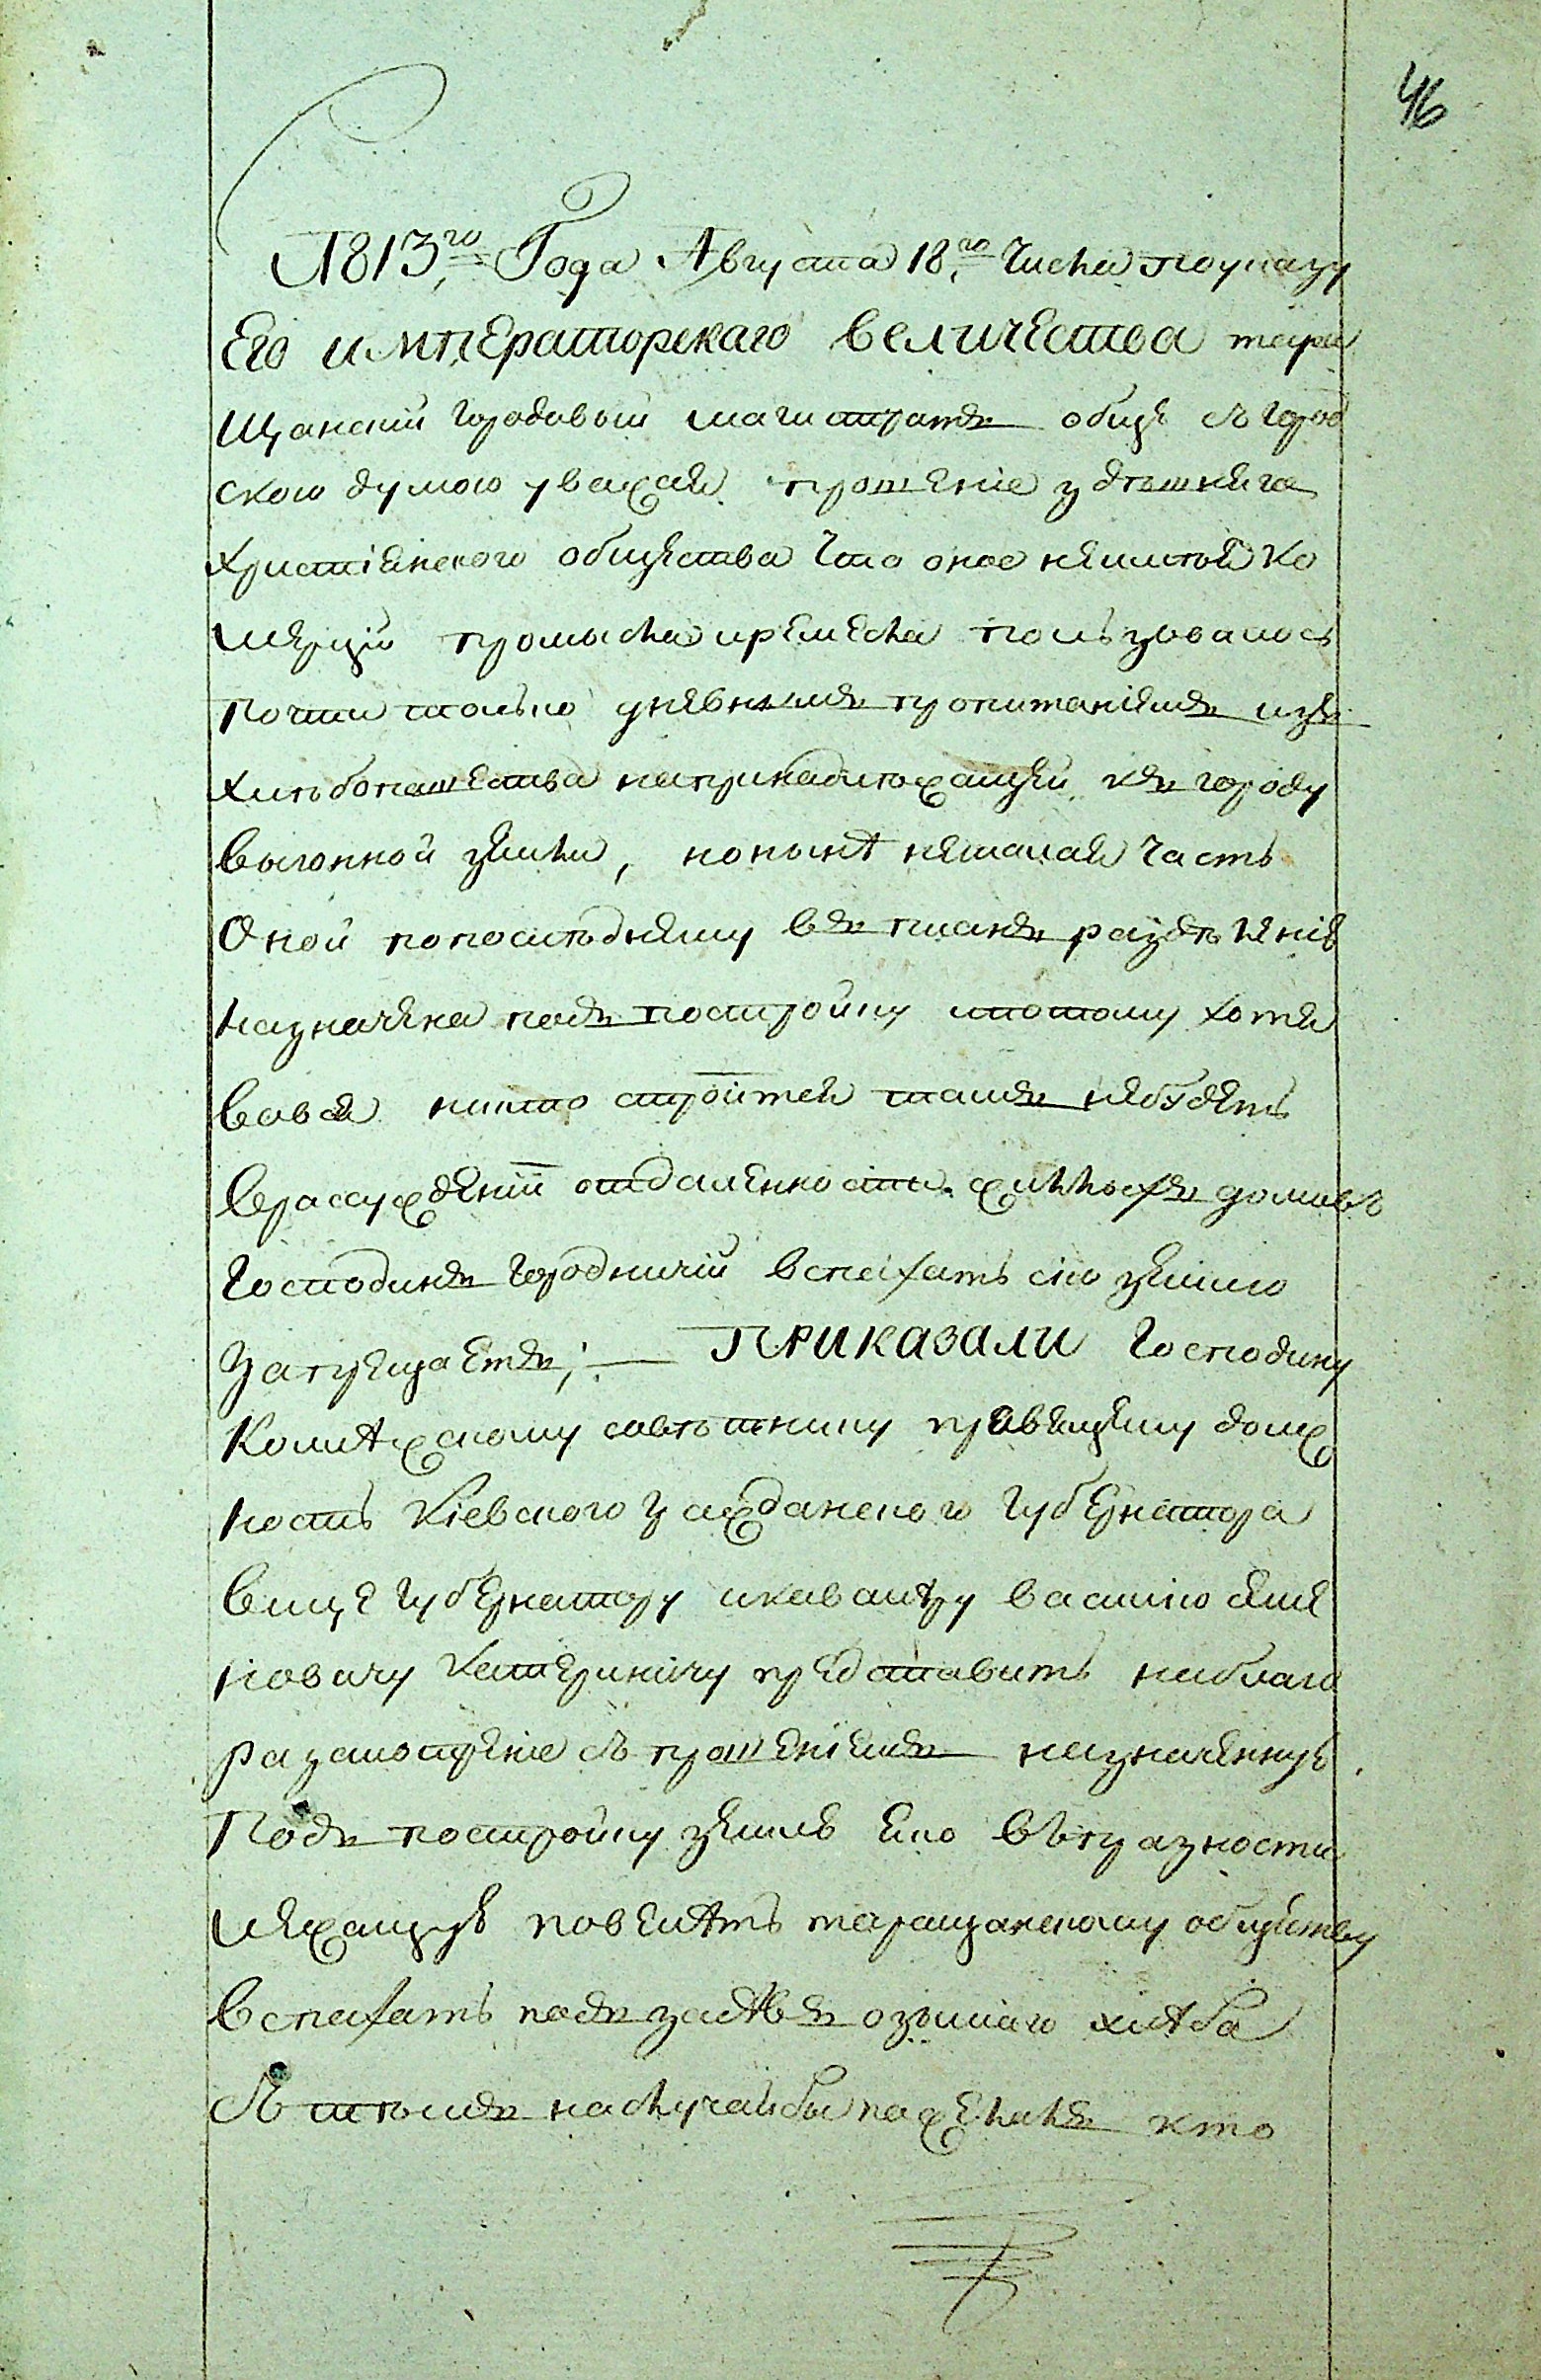 46
1813го Года Августа 18го Числа поуказу
Его императорскаго величества тара
Щанский городовый магистратъ обще съ город
скою думою уважая прошеніе здѣшняго
христіянского общества Что оное неимѣя ко
мерціи промысла иремесла пользовалось
Почти только дневнымъ пропитаніемъ изъ
хлѣбопашества напринадлѣжащей къ городу
выгонной земли, нонынѣ немалая часть
Оной попослѣднему въ планѣ раздѣленію
назначена подъ постройку ипотому хотя
вовся никто строится тамъ небудетъ
Врассужденіи отдаленности жилыхъ домовъ
Господинъ городничій вспахать сію землю
Запрещаетъ; — Приказали Господину
Колѣжскому совѣтнику правящему долж
ность Кіевского гражданского губернатора
вице губернатору икавалѣру василію семе
новичу Катериничу представить наблаго
разсмотреніе съ прошеніемъ назначенную
Подъ постройку землюЕю впразности
лежащую повелѣть таращанскому обществу
вспахать подъ засѣвъ озимаго хлѣба
Съ тѣмъ наслучай бы пожелалъ кто